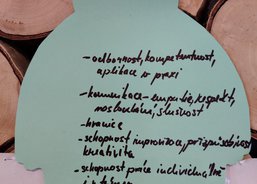 - odbornost, kompetentnost,
aplikace v praxi
- komunikace - empatie, respekt,
naslouchání, slušnost
- hranice
- schopnost improvizace, přizpůsobivost
kreativita
- schopnost práce individuálně
i v týmu